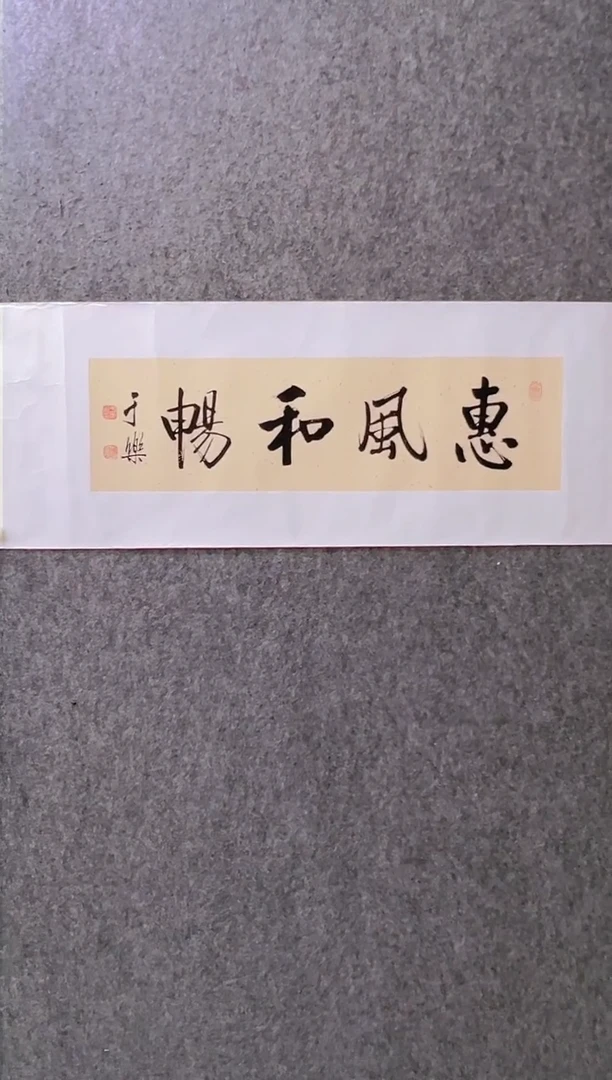 惠風和暢
于樂